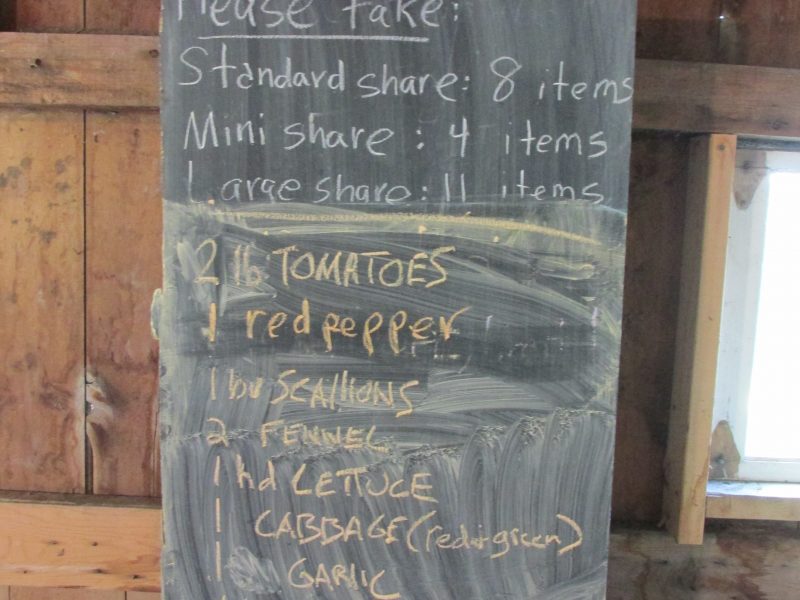 Please take:
Standard share: 8 items
Mini share: 4 items
Large share: 11 items
2 lb TOMATOES
1 red pepper
1 bu SCAllIONS
2 FENNEL
1 hd LETTUCE
1 CABBAGE (red or green)
1 GARLIC